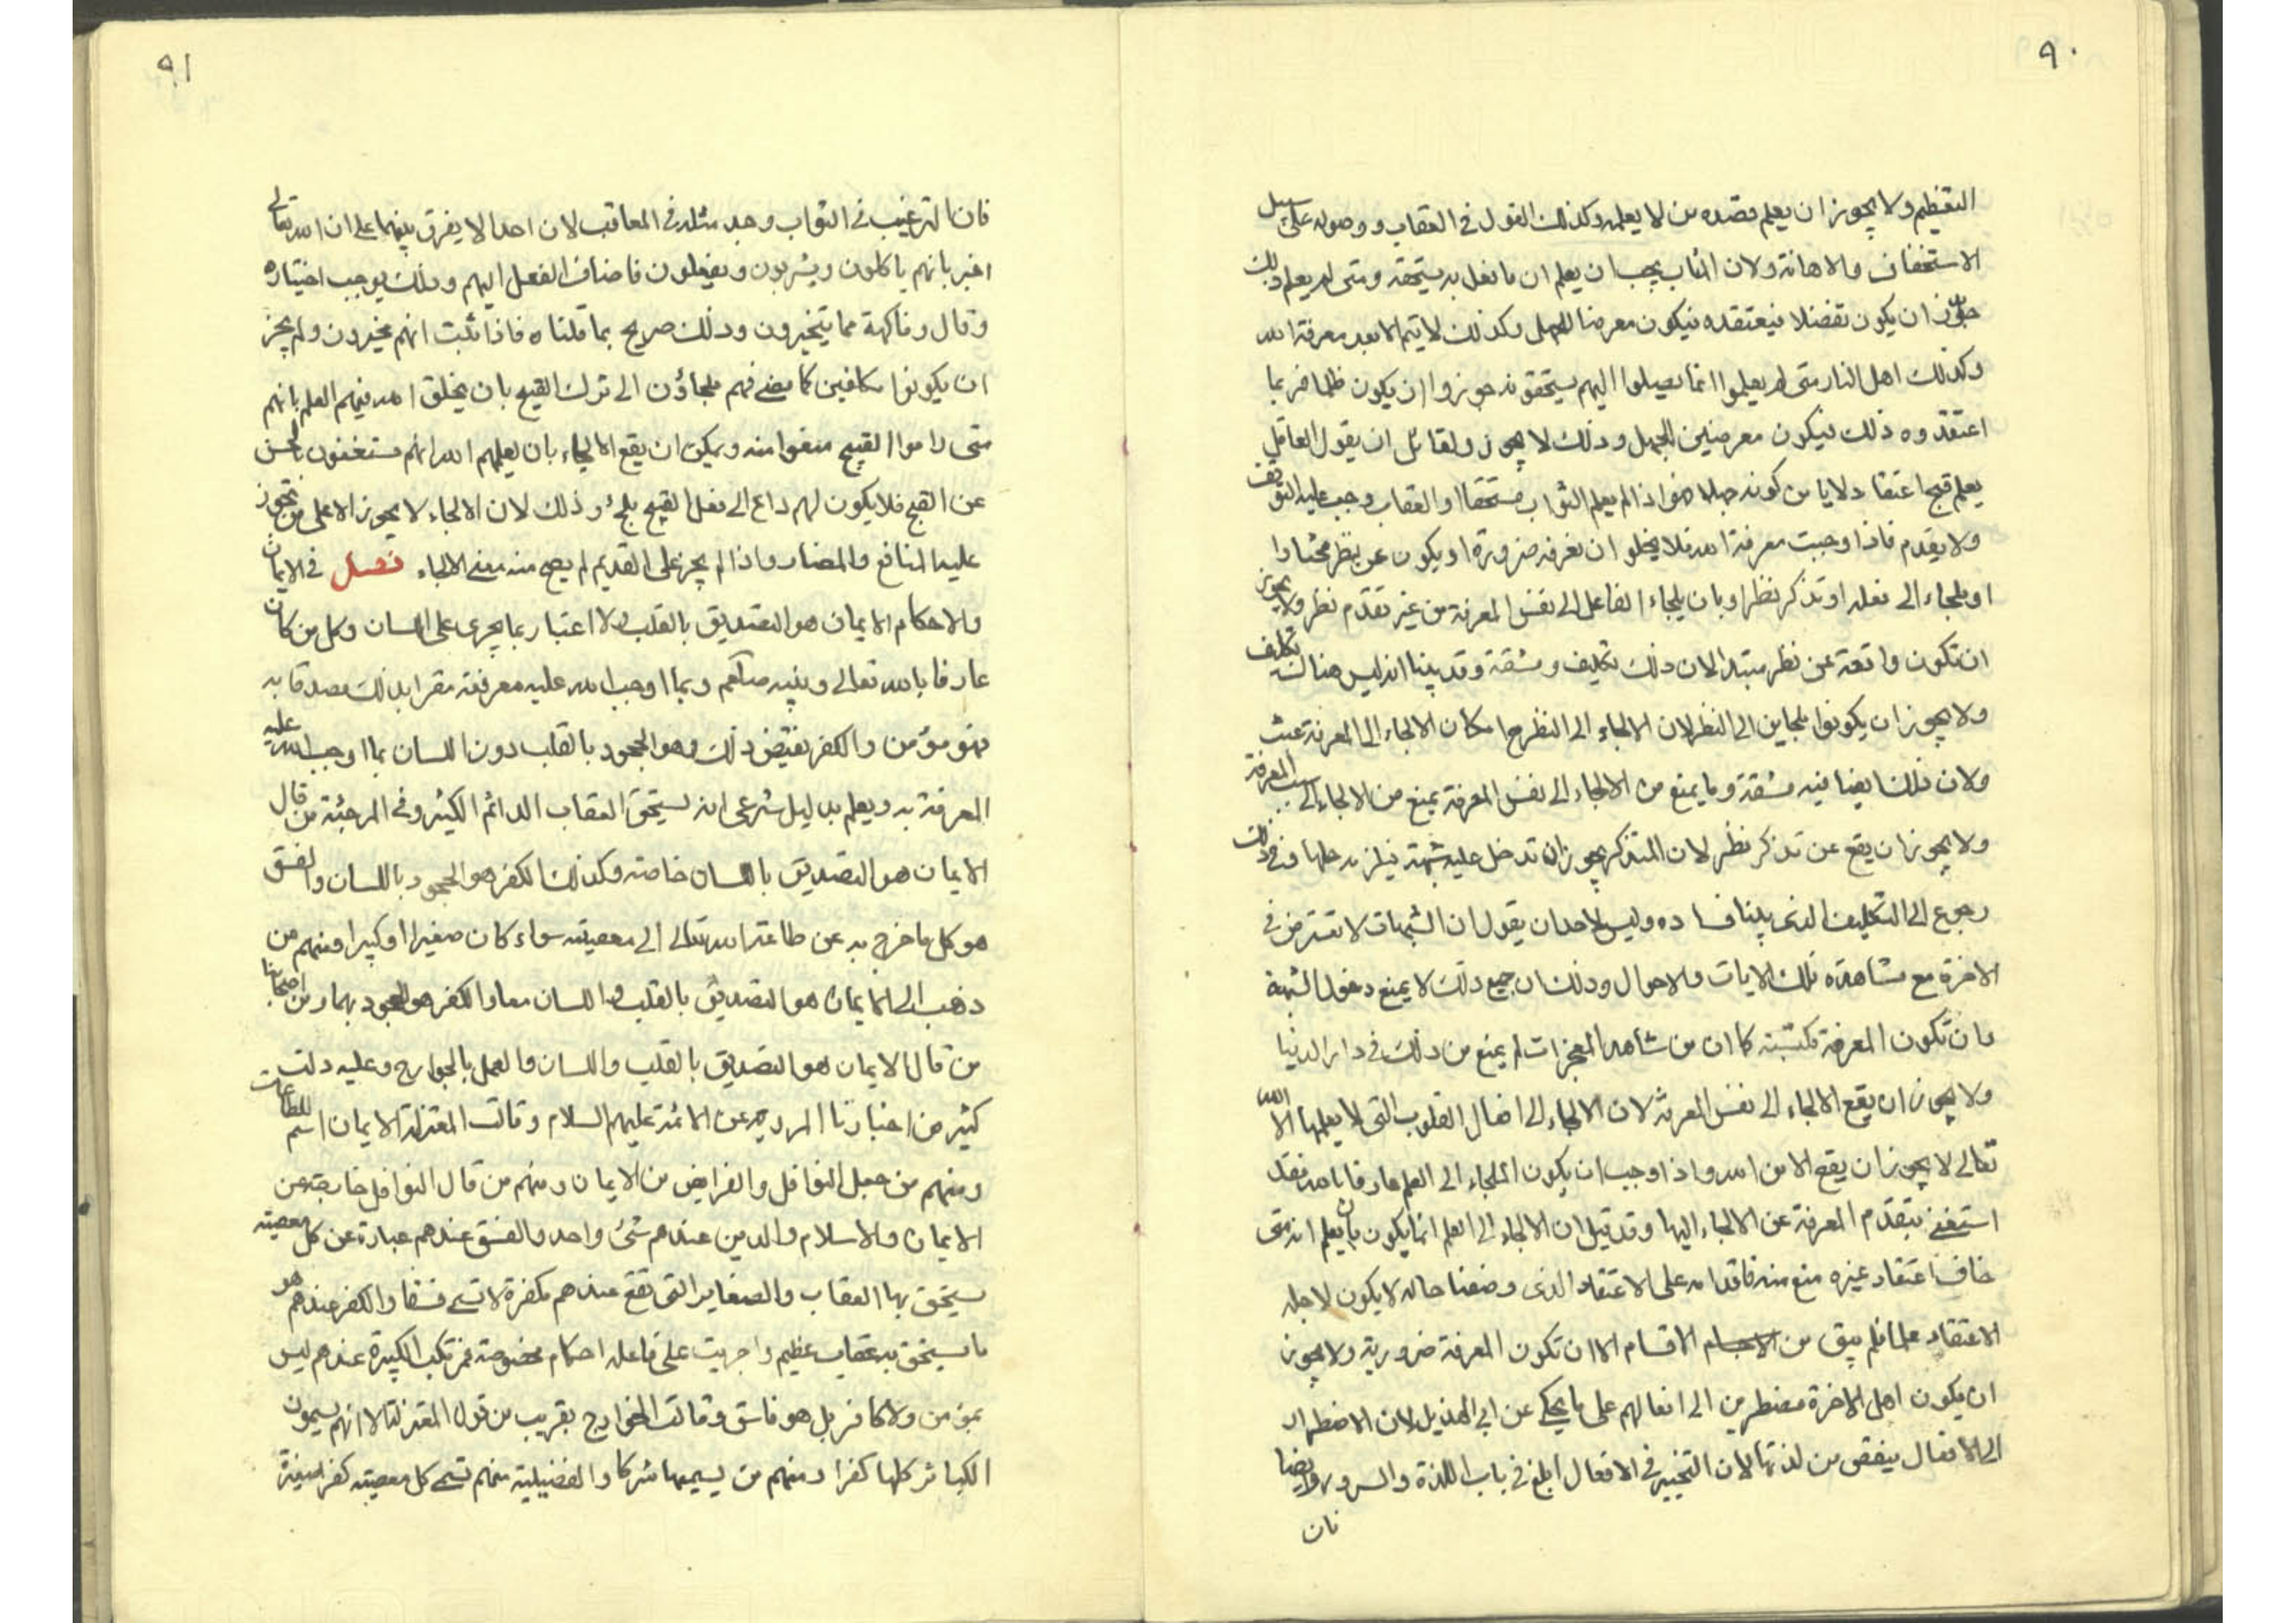 ٩٠
التعظيم ولا يجوز ان يعلم قصده من لا يعلمه وكذلك القول في العقاب ووصوله على سبيل
الاستخفاف والاهانة ولان المثاب يجب ان يعلم ان ما فعل به يستحقه ومتى لم يعلم ذلك
جوز ان يكون تفضلا فيعتقده فيكون معرضا للجهل وكذلك لا يتم الا بعد معرفة الله
وكذلك اهل النار متى لم يعلموا انما يصلوا اليهم يستحقونه جوزوا ان يكون ظلما فربما
اعتقدوه ذلك فيكون معرضين للجهل وذلك لا يجوز ولقائل ان يقول العاقل
يعلم قبح اعتقاد لا يامن كونه جهلا فهو اذا لم يعلم الثواب مستحقا او العقاب وجب عليه التوقف
ولا يقدم فاذا وجبت معرفة الله فلا يخلو ان نعرفه ضرورة او يكون عن نظر مختارا
او ملجاء الى فعله او تذكر نظر او بان يلجاء الفاعل الى نفس المعرفة من غير تقدم نظر ولا يجوز
ان تكون واقعة عن نظر مبتدا لان ذلك تكليف ومشقة وقد بينا انه ليس هناك تكليف
ولا يجوز ان يكونوا ملجاين الى النظر لان الالجاء الى النظر مع امكان الالجاء الى المعرفة عبث
ولان ذلك ايضا فيه مشقة وما يمنع من الالجاء الى نفس المعرفة يمنع من الالجاء الى سبب المعرفة
ولا يجوز ان يقع عن تذكر نظر لان المتذكر يجوز ان تدخل عليه شبهة فيلزمه حلها وفي ذلك
رجوع الى التكليف الذي بينا فساده وليس لاحد ان يقول ان الشبهات لا تعترض في
الاخرة مع مشاهدة تلك الايات والاحوال وذلك ان جميع ذلك لا يمنع دخول الشبهة
وان تكون المعرفة مكتسبة كما ان من شاهد المعجزات لم يمنع من ذلك في دار الدنيا
ولا يجوز ان يقع الالجاء الى نفس المعرفة لان الالجاء الى افعال القلوب التي لا يعلمها الا الله
تعالى لا يجوز ان يقع الا من الله واذا وجب ان يكون الملجاء الى العلم عارفا بالله فقد
استغنى بتقدم المعرفة عن الالجاء اليها وقد قيل ان الالجاء الى العلم انما يكون بان يعلم انه متى
خاف اعتقاد غيره منع منه فاقدامه على الاعتقاد الذي وصفنا حاله لا يكون لاجله
الاعتقاد علما فلم يبق من الاقسام الا ان تكون المعرفة ضرورية ولا يجوز
ان يكون اهل الاخرة مضطرين الى افعالهم على ما يحكى عن ابي الهذيل لان الاضطرار
الى الافعال ينقص من لذتها لان التخيير في الافعال ابلغ في باب اللذة والسرور وايضا
فان
٩١
فان الترغيب في الثواب وجد مثله في المعاقب لان احدا لا يفرق بينهما على ان الله تعالى
اخبر بانهم ياكلون ويشربون ويفعلون فاضاف الفعل اليهم وذلك يوجب اختياره
وقال وفاكهة مما يتخيرون وذلك صريح بما قلناه فاذا ثبت انهم مخيرون ولم يجز
ان يكونوا مكلفين كما مضى فهم ملجاؤن الى ترك القبيح بان يخلق الله فيهم العلم بانهم
متى راموا القبيح منعوا منه ويمكن ان يقع الالجاء بان يعلمهم الله انهم مستغنون بالحسن
عن القبيح فلا يكون لهم داع الى فعل القبيح يلجئ وذلك لان الالجاء لا يجوز الا على من تجوز
عليه المنافع والمضار واذا لم يجز على القديم لم يصح منه معنى الالجاء فصل في الايمان
والاحكام الايمان هو التصديق بالقلب ولا اعتبار بما يجرى على اللسان وكل من كان
عارفا بالله تعالى ونبيه صلعم وبما اوجب الله عليه معرفته مقرا بذلك مصدقا به
فهو مؤمن والكفر نقيض ذلك وهو الجحود بالقلب دون اللسان بما اوجب الله عليه
المعرفة به ويعلم بدليل شرعى انه يستحق العقاب الدائم الكثير وفي المرجئة من قال
الايمان هو التصديق باللسان خاصة وكذلك الكفر هو الجحود باللسان والفسق
هو كل ما خرج به عن طاعة الله تعالى الى معصيته سواء كان صغيرا او كبيرا ومنهم من
ذهب الى الايمان هو التصديق بالقلب واللسان معا والكفر هو الجحود بهما ومن اصحابنا
من قال الايمان هو التصديق بالقلب واللسان والعمل بالجوارح وعليه دلت
كثير من اخبارنا المروية عن الائمة عليهم السلام وقالت المعتزلة الايمان اسم للطاعات
ومنهم من جعل النوافل والفرايض من الايمان ومنهم من قال النوافل خارجة عن
الايمان والاسلام والدين عندهم شئ واحد والفسق عندهم عبارة عن كل معصية
يستحق بها العقاب والصغاير التى تقع عندهم مكفرة لا تسمى فسقا والكفر عندهم هو
ما يستحق به عقاب عظيم واجريت على فاعله احكام مخصوصة فمرتكب الكبيرة عندهم ليس
بمؤمن ولا كافر بل هو فاسق وقالت الخوارج بقريب من قول المعتزلة الا انهم يسمون
الكبائر كلها كفرا ومنهم من يسميها شركا والفضيلية منهم تسمى كل معصية كفرا صغيرة